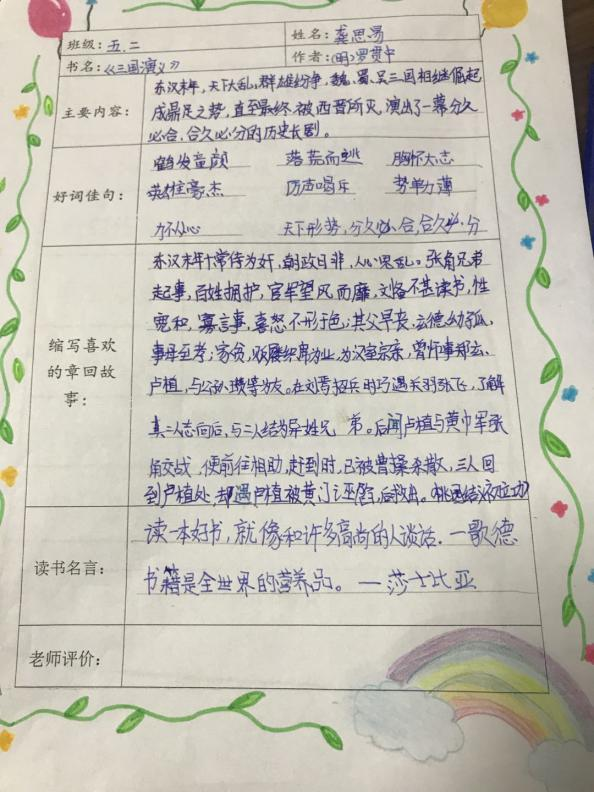 班级：五.二 姓名：龚思易
书名：《三国演义》 作者：(明)罗贯中
主要内容：
东汉末年，天下大乱，群雄纷争，魏、蜀、吴三国相继倔起
成鼎足之势，直至最终被西晋所灭，演出了一幕分久
必合，合久必分的历史长剧。
好词佳句：
鹤发童颜 落荒而逃 胸怀大志
英雄豪杰 厉声喝斥 势单力薄
力不从心 天下形势，分久必合，合久必分
缩写喜欢
的章回故
事：
东汉末年十常侍为奸，朝政日非，人心思乱。张角兄弟
起事，百姓拥护，官军望风而靡，刘备不甚读书，性
宽和，寡言事，喜怒不形于色；其父早丧，玄德幼孤，
事母至孝；家贫，贩屦织席为业，为汉室宗亲，曾怀事郑玄、
卢植，与公孙瓒等为友。在刘焉招兵时巧遇关羽张飞，了解
其二人志向后，与二人结为异姓兄弟。后闻卢植与黄巾军张
角交战，便前往相助，赶到时，已被曹操杀散，三人回
到卢植处，却遇卢植被黄门诬陷，后救出。桃园结义被立功
读书名言：
读一本好书，就像和许多高尚的人谈话.一歌德
书籍是全世界的营养品。一莎士比亚
老师评价：